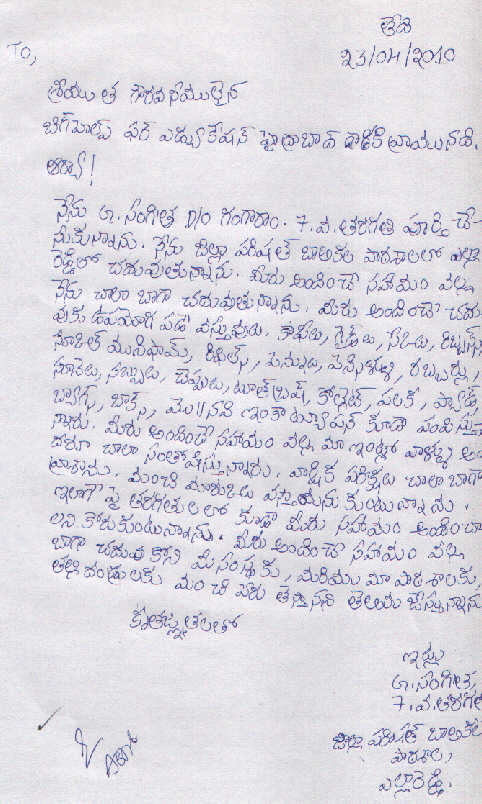 తేది
23/04/2010
TO,
శ్రీయుత గౌరవనీయులైన
బిగ్ హెల్ప్ ఫర్ ఎడ్యుకేషన్ హైద్రాబాద్ వారికి వ్రాయునది.
ఆర్యా!
నేను G. సంగీత D/o గంగారాం. 7.వ.తరగతి పూర్తి చే-
సుకున్నాను. నేను జిల్లా పరిషత్ బాలికల పాఠశాలలో ఎల్లా
రెడ్డిలో చదువుతున్నాను. మీరు అందించే సహాయం వల్ల
నేను చాలా బాగా చదువుతున్నాను. మీరు అందించే చదు
వుకు ఉపయోగ పడే వస్తువులు. నోట్సులు, గైడ్లు, రిబ్బన్స్,
పెన్నులు, పెన్సిళ్ళు, రబ్బర్లు,
సబ్బులు, చెప్పులు, టూత్ బ్రష్, కోల్గెట్, పలక, ప్యాడ్,
బ్యాగ్స్, బాక్స్, మొ||నవి ఇంకా ట్యూషన్ కూడా పంపిస్తు
న్నారు. మీరు అందించే సహాయం వల్ల మా ఇంట్లో వాళ్ళు అం
దరూ చాలా సంతోషిస్తున్నారు. వార్షిక పరీక్షలు చాలా బాగా
వ్రాశాను. మంచి మార్కులు వస్తాయనుకుంటున్నాను.
ఇలాగే పై తరగతులలో కూడా మీరు సహాయం అందించా
లని కోరుకుంటున్నాను. మీరు అందించే సహాయం వల్ల
బాగా చదువుకొని మీ సంస్థకు, మరియు మా పాఠశాలకు,
తల్లిదండ్రులకు మంచి పేరు తెస్తానని తెలియజేస్తున్నాను
కృతజ్ఞతలతో
ఇట్లు
G. సంగీత,
7.వ.తరగతి
జిల్లా పరిషత్ బాలికల
పాఠశాల,
ఎల్లారెడ్డి.